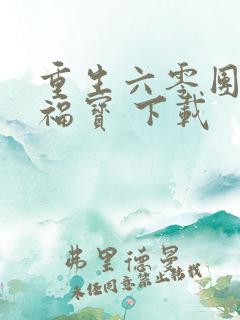 重生六零團
福寶 下載
弗里德曼
未经同意禁止转载